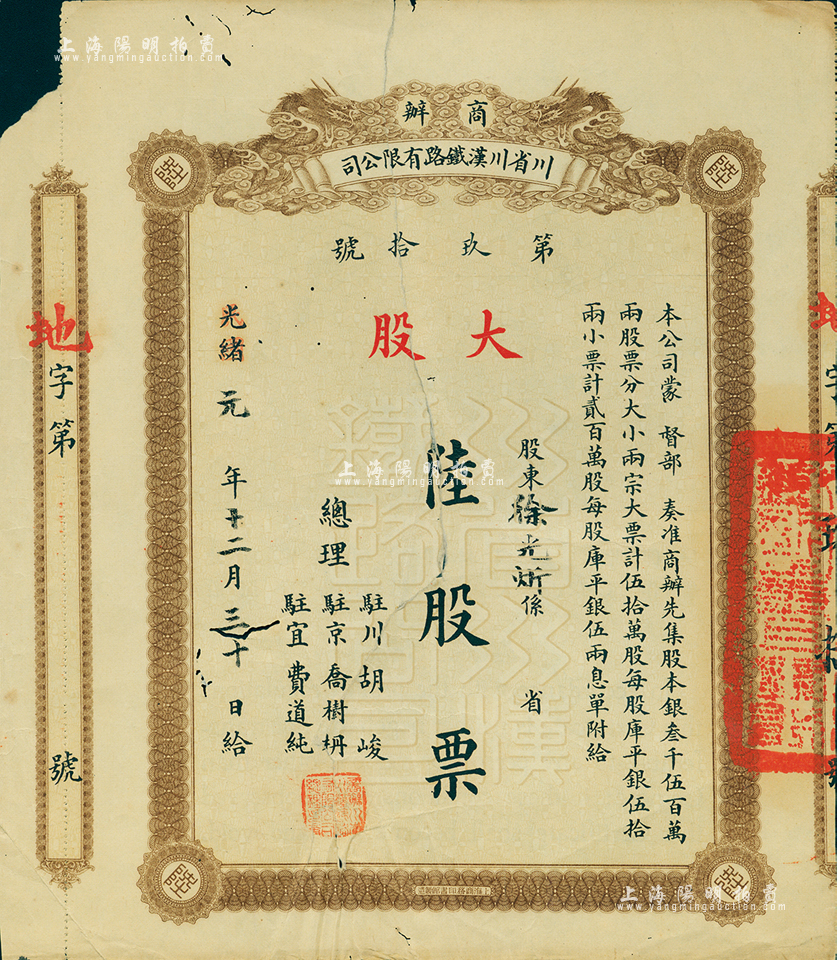 上海陽明拍賣
www.yangmingauction.com
商辦
川省川漢鐵路有限公司
第玖拾號
本公司蒙 督部 奏准商辦先集股本銀叁千伍百萬
兩股票分大小兩宗大票計伍拾萬股每股庫平銀伍拾
兩小票計貳百萬股每股庫平銀伍兩息單附給
大股
股東徐光炘係 省
陸股票
總理
駐川胡峻
駐京喬樹枬
駐宜費道純
光緒元年十二月三十日給
地字第 號
上海陽明拍賣
www.yangmingauction.com
上海陽明拍賣
www.yangmingauction.com